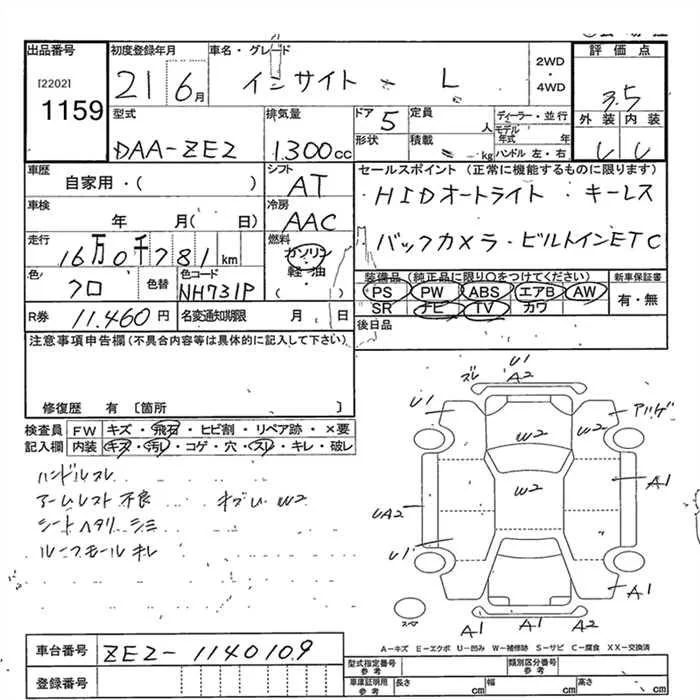 出品番号
[2202]
1159
初度登録年月
21 6月
車名・グレード
インサイト L
2WD
・
4WD
評価点
3.5
外装 内装
型式
DAA-ZE2
排気量
1.300cc
ドア 5
形状
定員
人
積載
kg
ディーラー・並行
モデル
年式 年
ハンドル 左・右
車歴
自家用・( )
シフト
AT
セールスポイント (正常に機能するものに限ります)
HIDオートライト・キーレス
バックカメラ・ビルトインETC
車検
年 月( 日)
冷房
AAC
走行
16万0千781km
燃料
ガソリン
軽・油
( )
色
クロ
色替
色コード
NH731P
装備品 (純正品に限り○をつけてください)
PS PW ABS エアB AW
SR ナビ TV カワ
新車保証書
有・無
後日品
R券 11.460円
名変通知期限 月 日
注意事項申告欄(不具合内容等は具体的に記入して下さい)
修復歴 有 〔箇所 〕
検査員
記入欄
FW キズ・飛石・ヒビ割・リペア跡・×要
内装 キズ・汚レ・コゲ・穴・スレ・キレ・破レ
ハンドルスレ
アームレスト不良
シートヘタリ シミ
ルーフモールキレ
W2
U1
A2
ズレ
U1
W2
W2
W2
UA2
A1
U1
A1
A1
A2
スペア
A-キズ E-エクボ U-凹み W-補修跡 S-サビ C-腐食 XX-交換済
車台番号
ZE2-1140109
登録番号
型式指定番号
参考
類別区分番号
参考
車庫証明用
参考
長さ cm
幅 cm
高さ cm